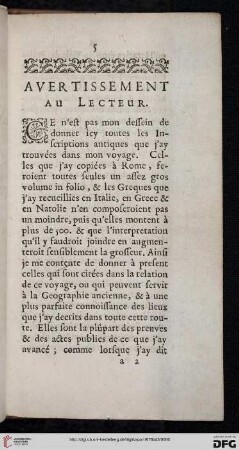 5
AVERTISSEMENT
AU LECTEUR.
CE n'est pas mon dessein de
donner icy toutes les In-
scriptions antiques que j'ay
trouvées dans mon voyage. Cel-
les que j'ay copiées à Rome, fe-
roient toutes seules un assez gros
volume in folio, & les Greques que
j'ay recueillies en Italie, en Grece &
en Natolie n'en composeroient pas
un moindre, puis qu'elles montent à
plus de 500. & que l'interpretation
qu'il y faudroit joindre en augmen-
teroit sensiblement la grosseur. Ainsi
je me contente de donner à present
celles qui sont citées dans la relation
de ce voyage, ou qui peuvent servir
à la Geographie ancienne, & à une
plus parfaite connoissance des lieux
que j'ay decrits dans toute cette rou-
te. Elles sont la plûpart des preuves
& des actes publics de ce que j'ay
avancé; comme lorsque j'ay dit
a 2
DFG